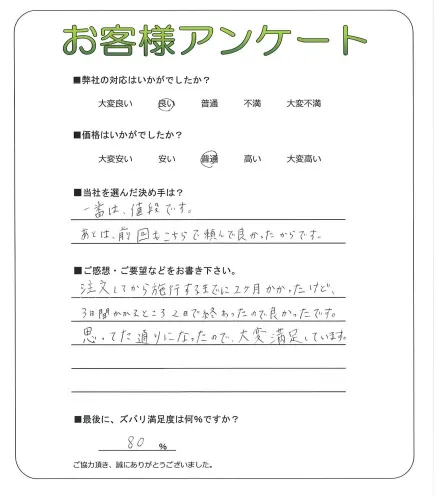 お客様アンケート
■弊社の対応はいかがでしたか？
大変良い 良い 普通 不満 大変不満
■価格はいかがでしたか？
大変安い 安い 普通 高い 大変高い
■当社を選んだ決め手は？
一番は、値段です。
あとは、前回もこちらで頼んで良かったからです。
■ご感想・ご要望などをお書き下さい。
注文してから施行するまでに2ヶ月かかったけど、
3日間かかるところ2日で終わったので良かったです。
思ってた通りになったので、大変満足しています。
■最後に、ズバリ満足度は何%ですか？
80 %
ご協力頂き、誠にありがとうございました。